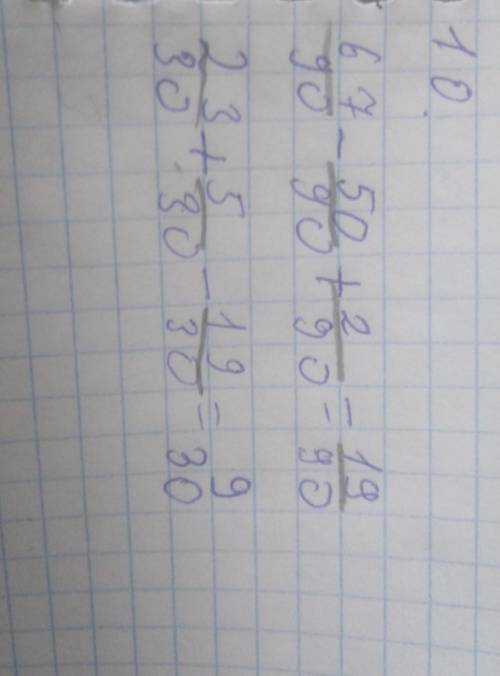 10.
67/90 - 50/90 + 2/90 = 19/90
23/30 + 5/30 - 19/30 = 9/30